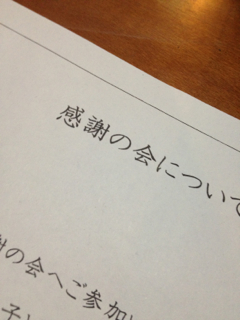 感謝の会について
謝の会へご参加
子